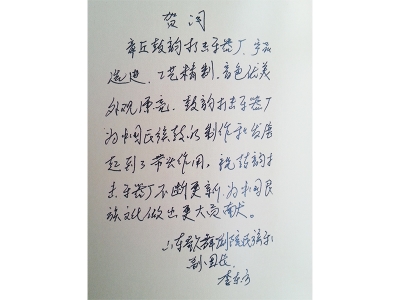 贺词
章丘鼓韵打击乐器厂，产品
选进、工艺精制、音色优美
外观漂亮，鼓韵打击乐器厂
为中国民族鼓的制作和发展
起到了带头作用，祝鼓韵打
击乐器厂不断更新，为中国民
族文化做出更大贡献。
山东歌舞剧院民族乐
副团长
李东方